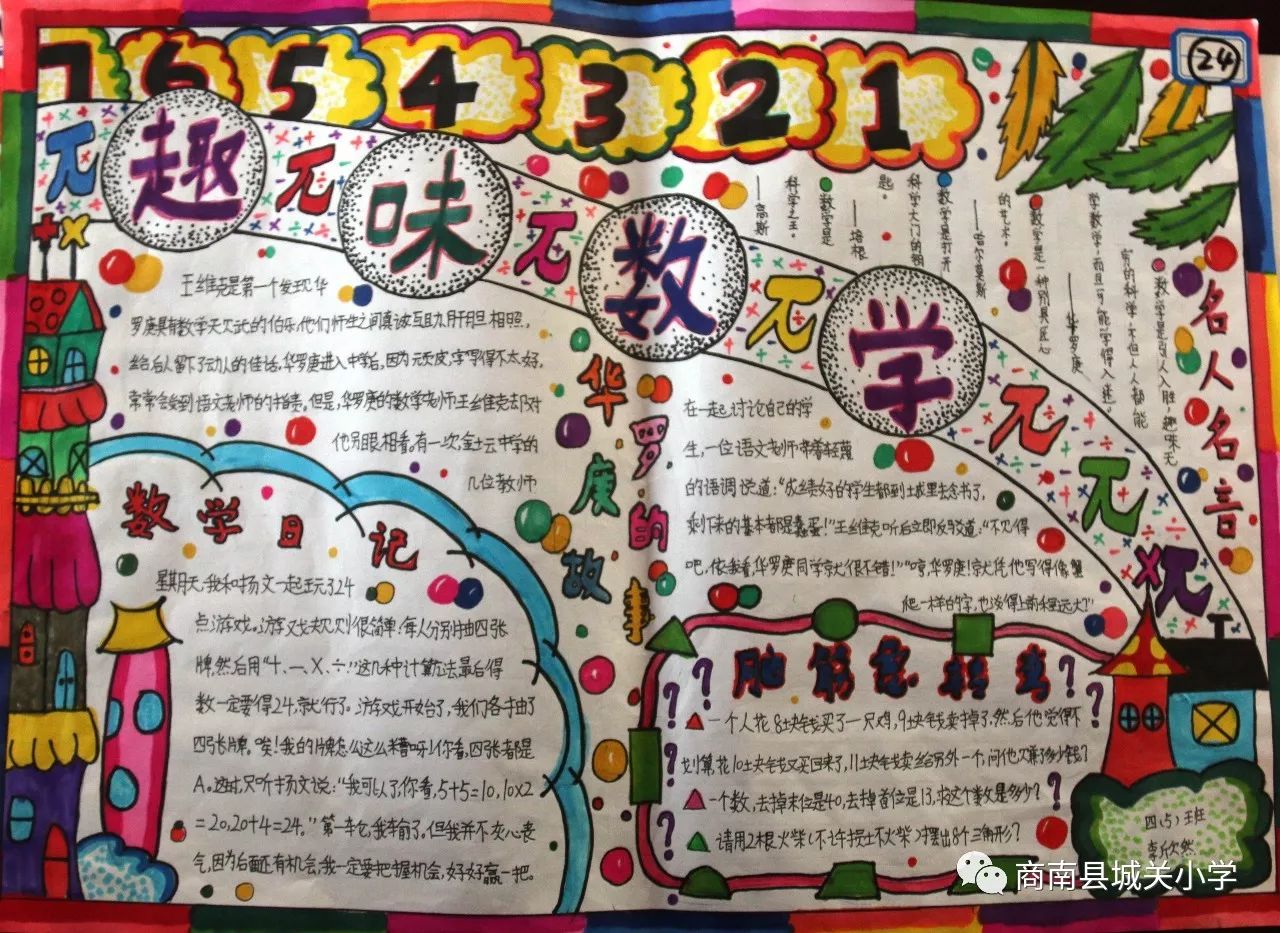 7 6 5 4 3 2 1
24
趣味数学
名人名言
数学是引人入胜,趣味无
穷的科学,不但人人都能
学数学,而且可能学得入迷。
——华罗庚
数学是一种别具匠心
的艺术。
——哈尔莫斯
数学是打开
科学大门的钥
匙。
——培根
数学是
科学之王。
——高斯
华罗庚的故事
王维克是第一个发现华
罗庚具有数学天赋的伯乐,他们师生之间真诚互助,肝胆相照,
给后人留下了动人的佳话,华罗庚进入中学后,因为元皮,字写得不太好,
常常会受到语文老师的指责。但是,华罗庚的数学老师王维克却对
他另眼相看。有一次,金土云中学的
几位教师
在一起讨论自己的学
生,一位语文老师带着轻蔑
的语调说道:“成绩好的学生都到土城里去念书了,
剩下来的基本都是蠢蛋!”王维克听后立即反驳道:“不见得
吧,依我看,华罗庚同学就很不错!”“哼,华罗庚!就凭他写得像蟹
爬一样的字,也谈得上前程远大?”
数学日记
星期天,我和杨文一起玩24
点游戏。游戏规则很简单:每人分别抽四张
牌,然后用“+、-、×、÷”这几种计算方法,最后得
数一定要得24,就行了。游戏开始了,我们各抽了
四张牌。唉!我的牌怎么这么糟呀!你看,四张都是
A。这时,只听杨文说:“我可以了,你看,5+5=10,10×2
=20,20+4=24。”第一轮,我输了。但我并不灰心丧
气,因为后面还有机会,我一定要把握机会,好好赢一把。
脑筋急转弯
一个人花8块钱买了一只鸡,9块钱卖掉了,然后他觉得不
划算,花10块钱又买回来了,11块钱卖给另外一个,问他赚了多少钱?
一个数,去掉末位是40,去掉首位是13,求这个数是多少?
请用2根火柴(不许损坏火柴)摆出8个三角形?
四(5)班
欣然
商南县城关小学